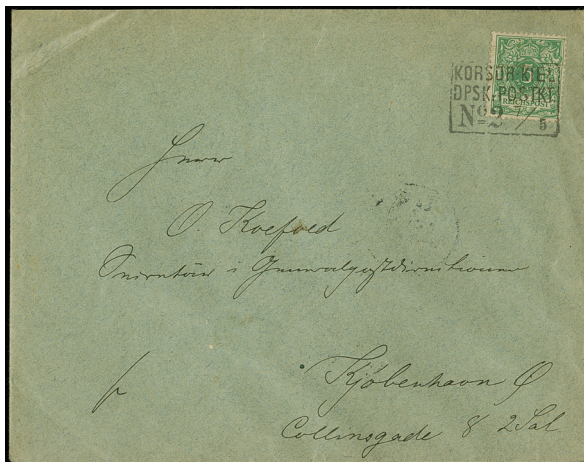 KORSØR KIEL
DPSK:POSTKT
No 2 7/5
5
REICHSPOST
Herrn
O. Koefoed
Secretär i Generalpostdirectionen
Kjøbenhavn Ø
Collinsgade 8 2 Sal